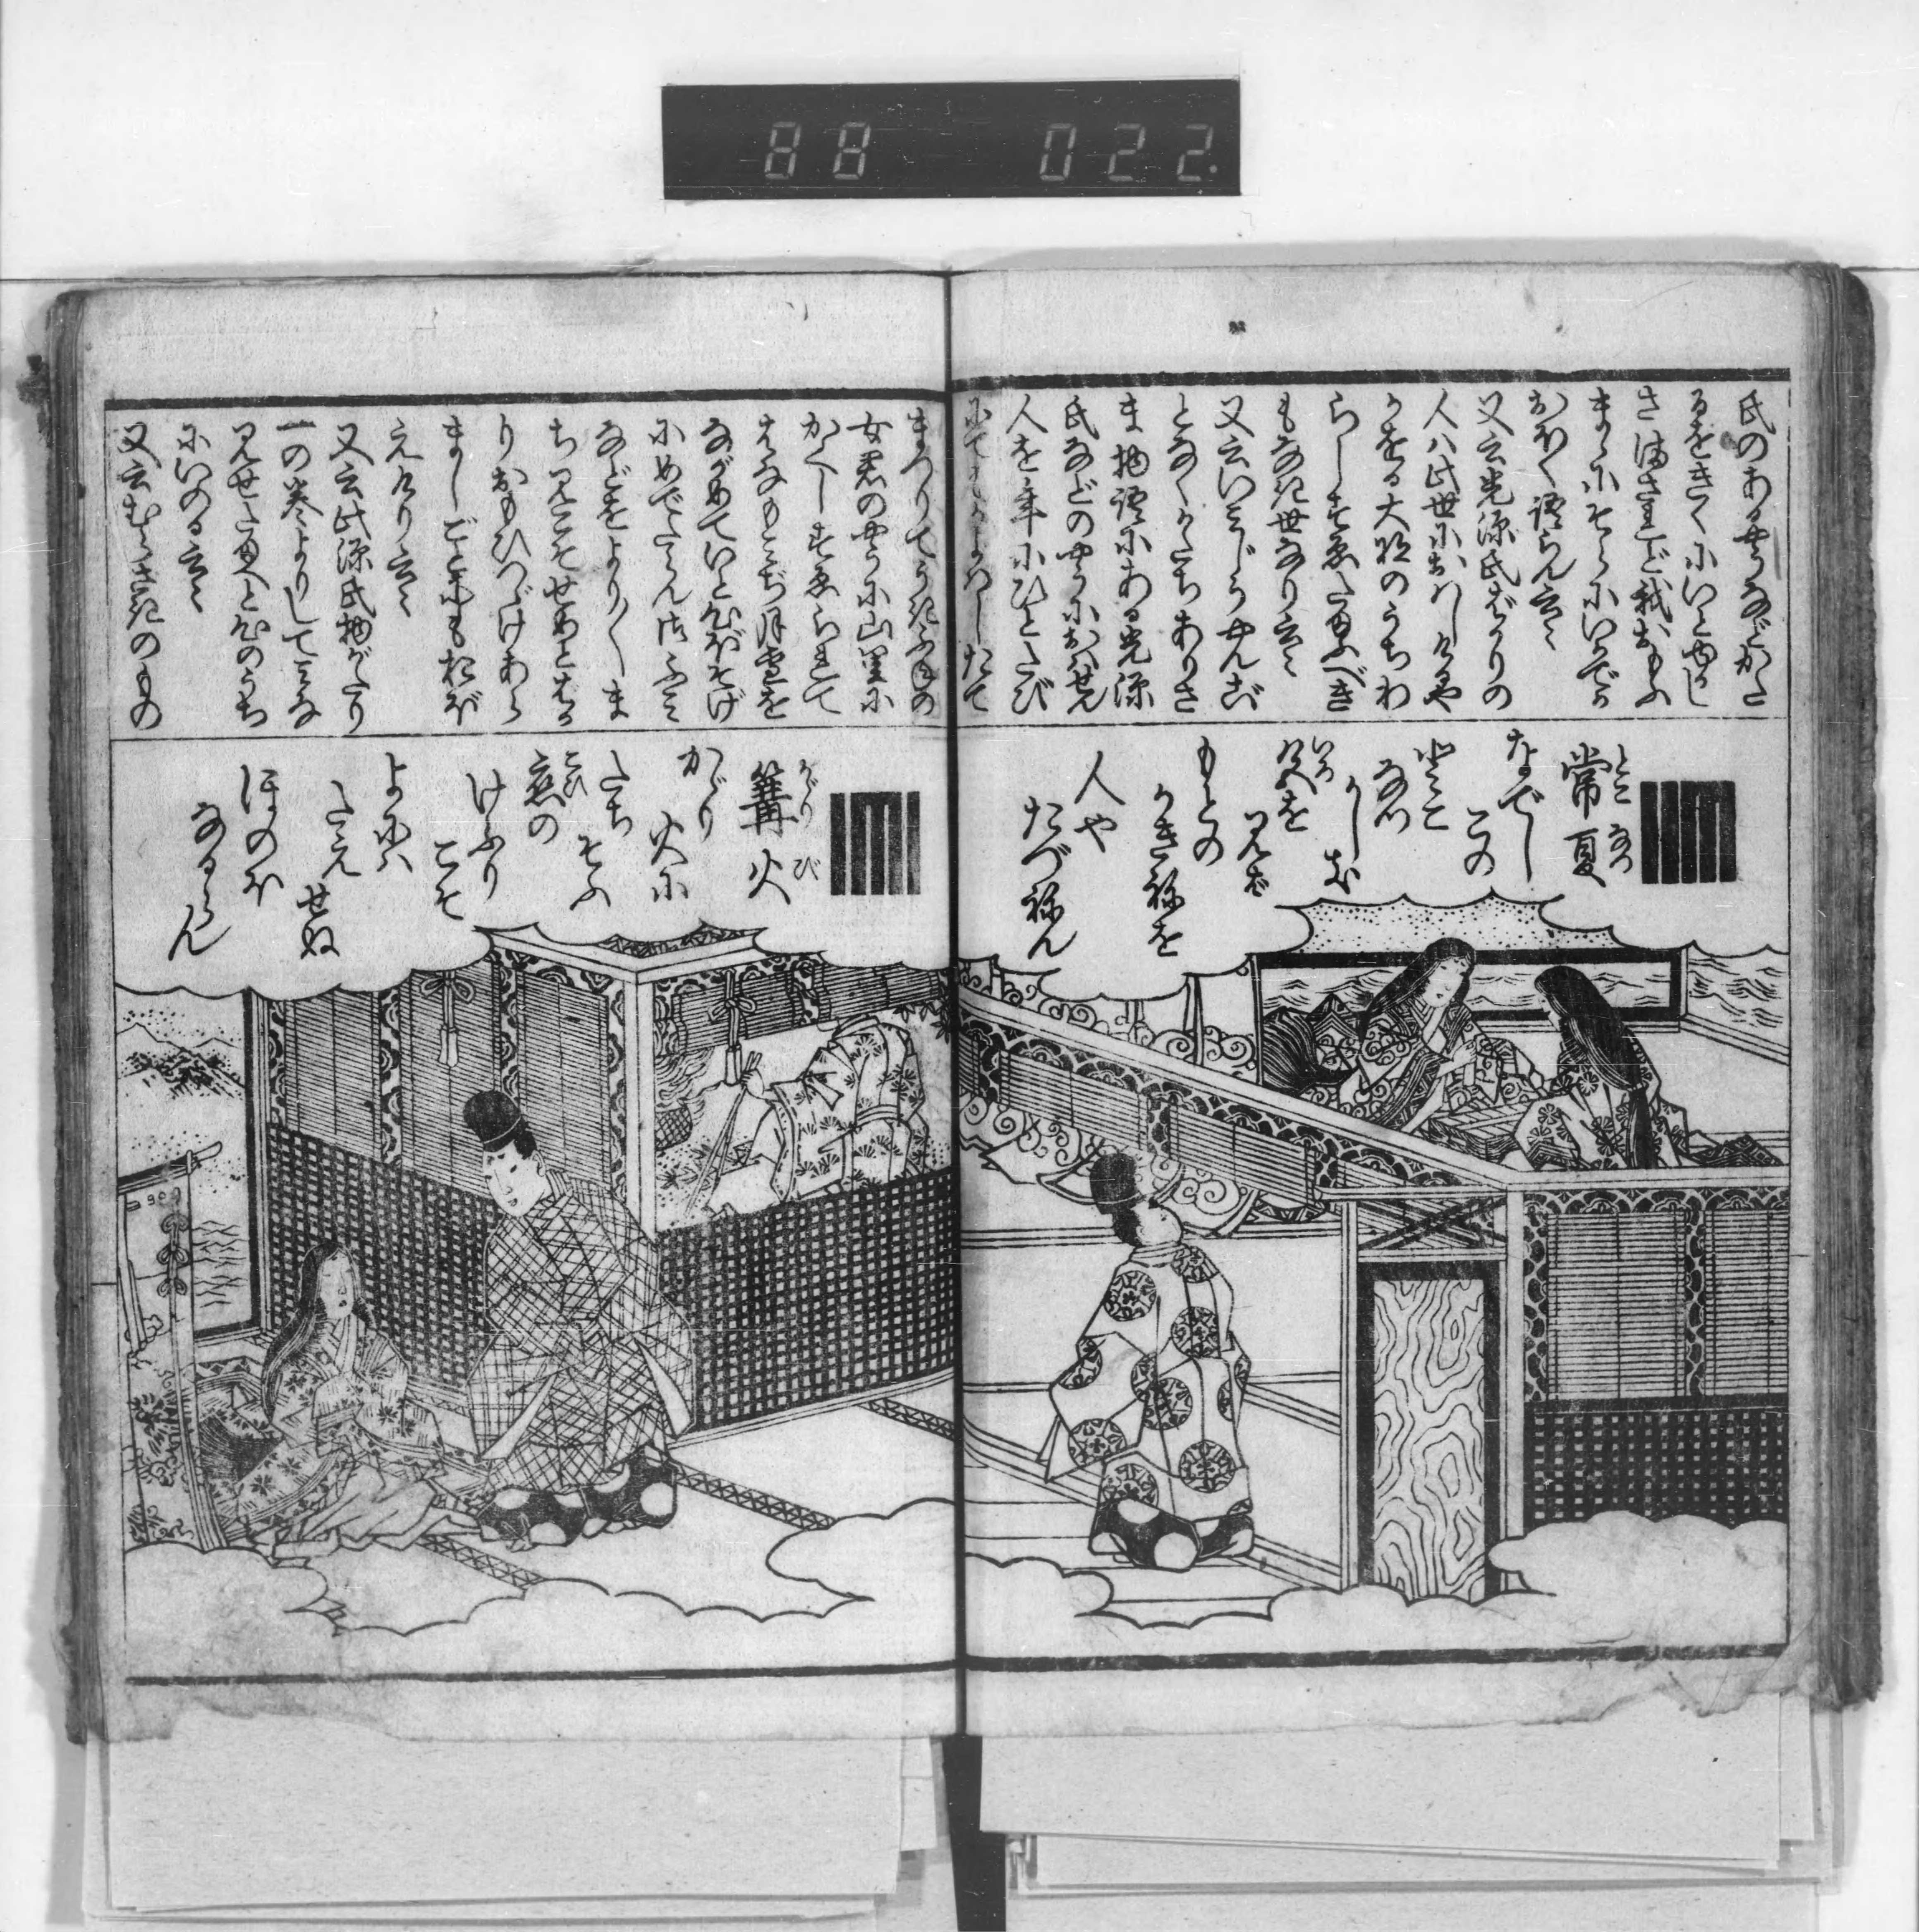 88 022.
氏のあるやうなどかた
るをきくにいとゞゆかし
さまされど我おもふ
まゝにそらにいかでか
おぼえ語らん云々
又云光源氏ばかりの
人ハ此世におハしけりや
かをる大将のうちにか
くしすゑたまふべき
もなき世なり云々
又云いみじうやんごと
となくかたちありさ
ま物語にある光源
氏などのやうにおハせん
人を年にひとたび
にてもかよハしたて
常夏
とこなつ
なでしこの
とこなつ
かしき
色を
いろ
見ば
もとの
かきねを
人や
たづねん
まつりてうきふねの
女君のやうに山里に
かくしすゑられて
はなもみぢ月雪を
ながめていと心ぼそげ
にめでたらん御ふミ
などをより〳〵ま
ち見こそせめとばか
りおもひつゞけあら
ましごとにもおぼ
えけり云々
又云此源氏物がたり
一の巻よりしてみな
見せたまへと心のうち
にいのる云々
又云むらさきのもの
篝火
かゞりび
かゞり
火に
たち
そふ
恋の
こひ
けふり
こそ
よにハ
たえ
せぬ
ほのほ
なるらん